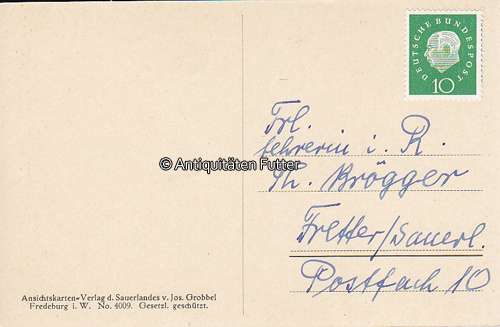 DEUTSCHE BUNDESPOST
10
Frl.
Lehrerin i. R.
Th. Brögger
Fretter/Sauerl.
Postfach 10
© Antiquitäten Futter
Ansichtskarten-Verlag d. Sauerlandes v. Jos. Grobbel
Fredeburg i. W. No. 4009. Gesetzl. geschützt.